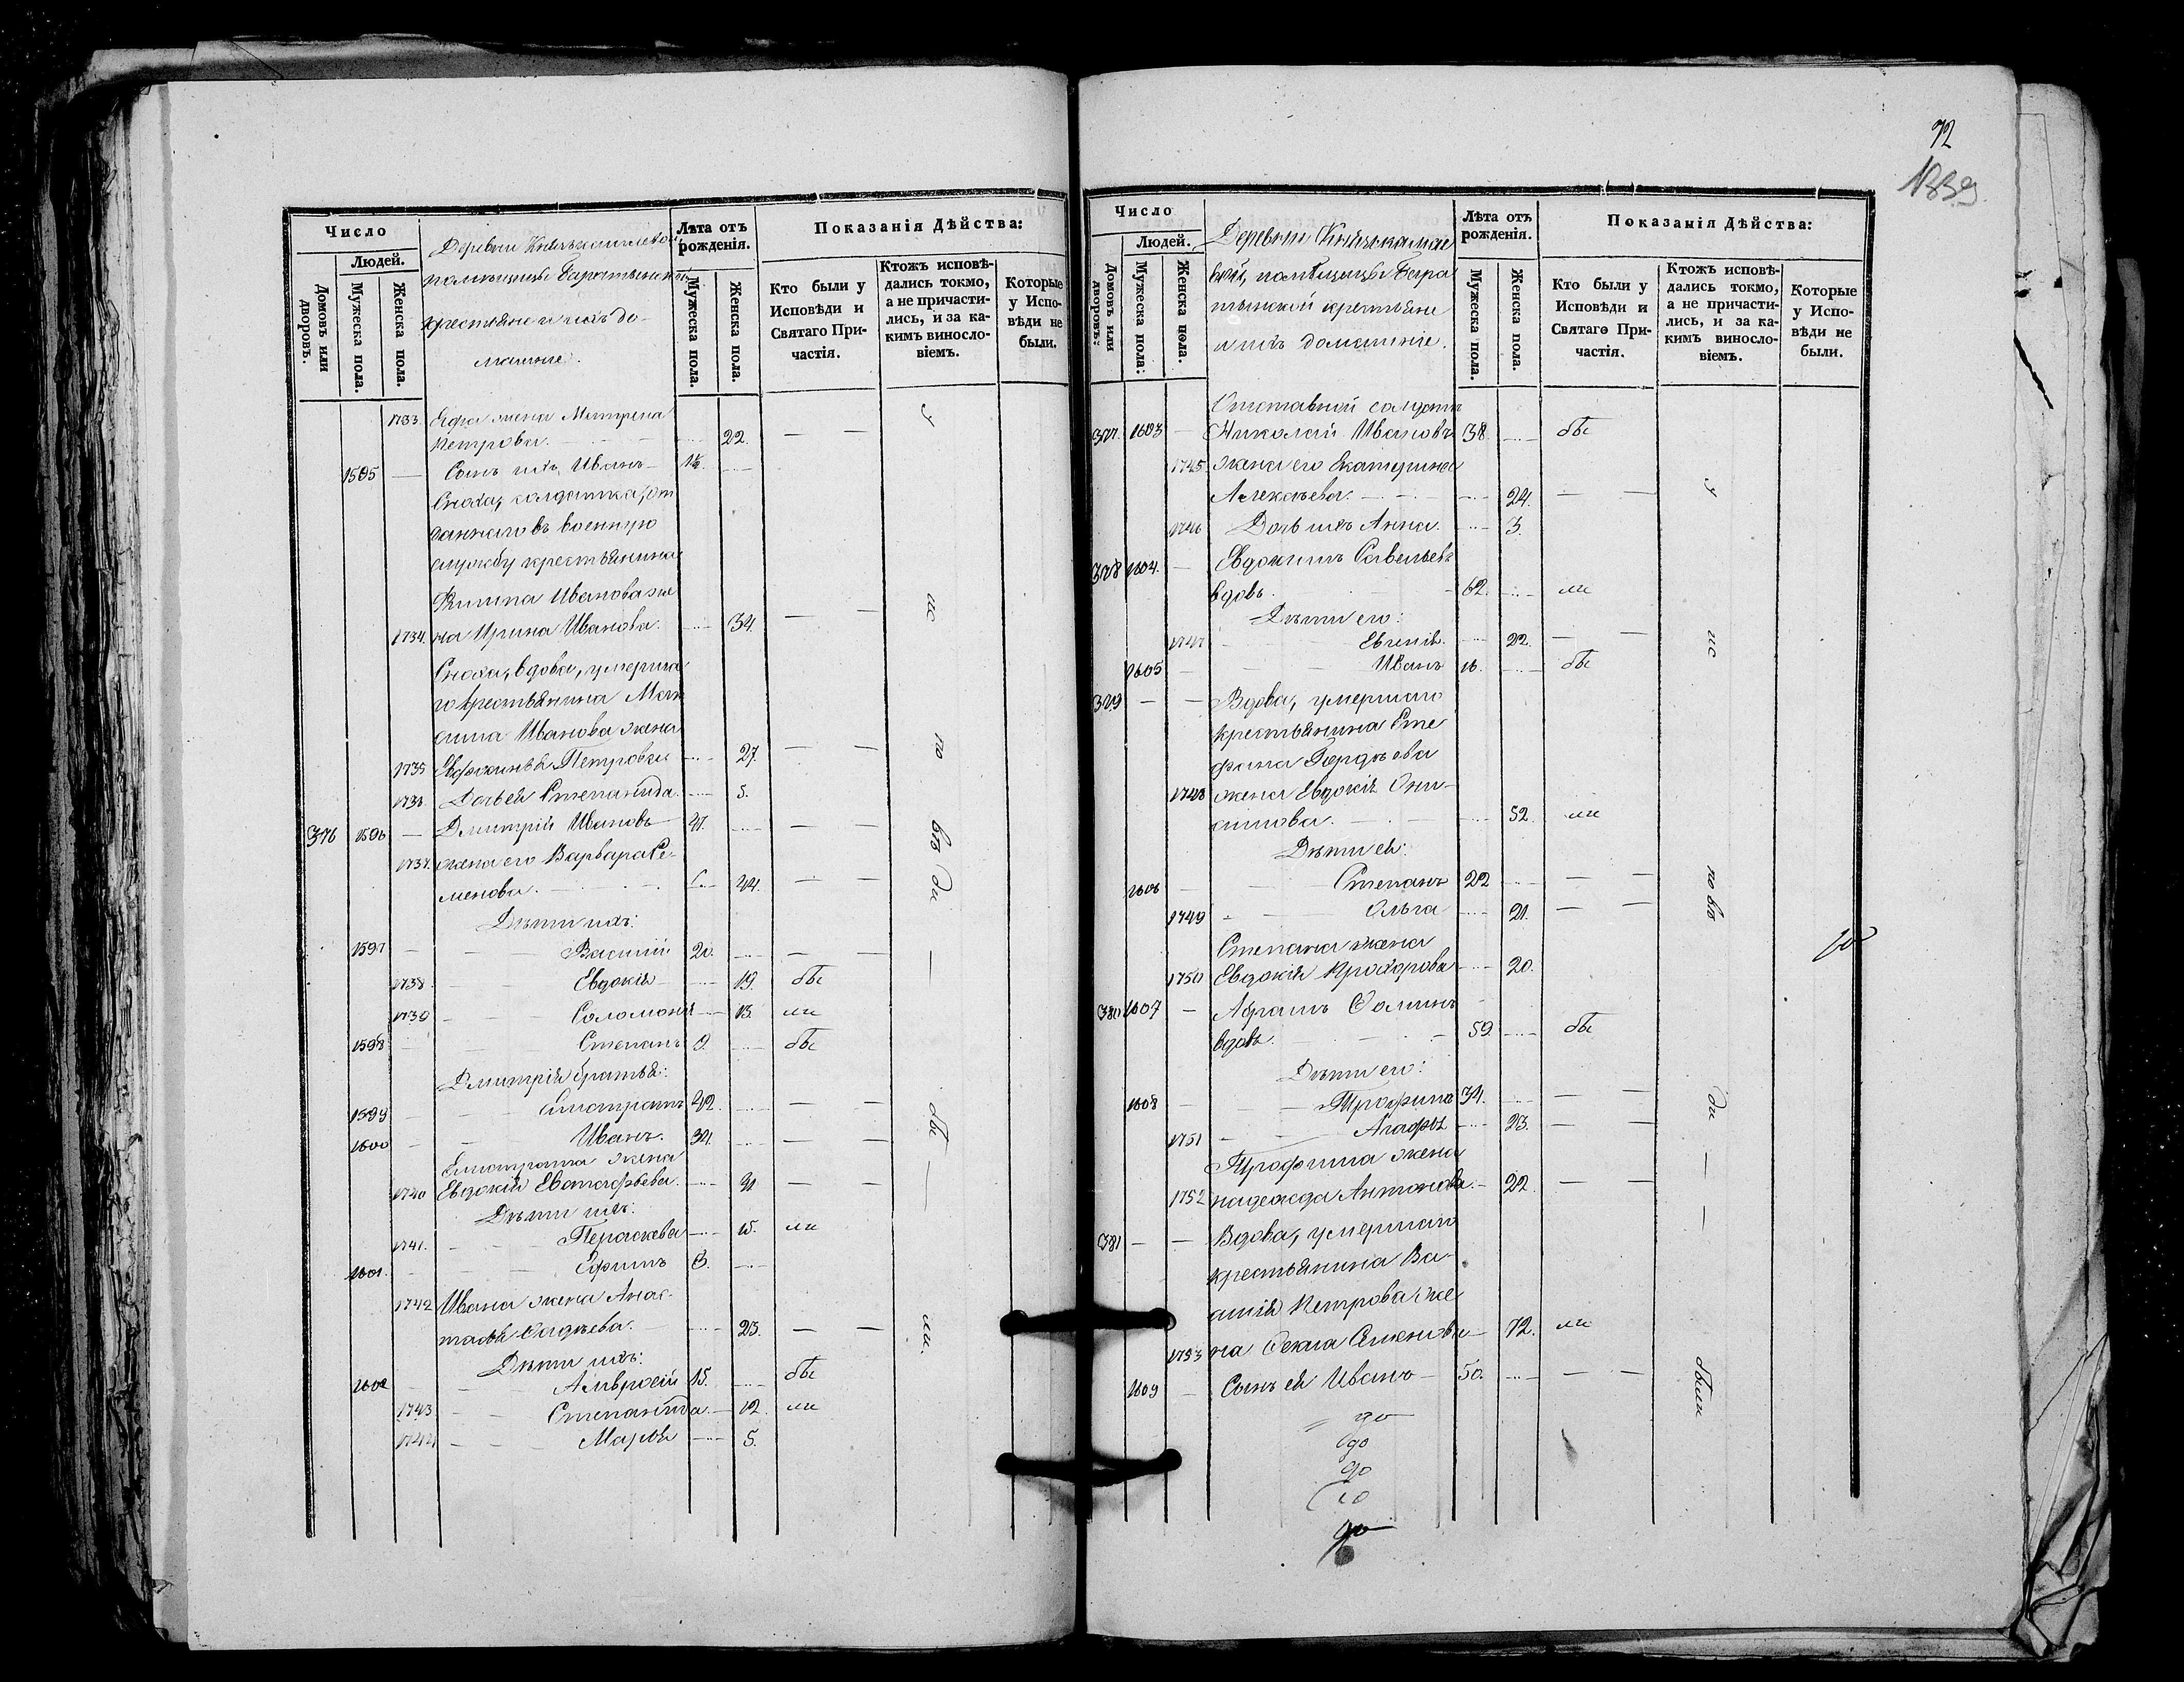 Число
Людей.
Домовъ или дворовъ.
Мужеска пола.
Женска пола.
Деревни
помѣщицы Баратынской
крестьяне и ихъ до-
машніе.
Лѣта отъ рожденія.
Мужеска пола.
Женска пола.
Показанія Дѣйства:
Кто были у Исповѣди и Святаго При-частія.
Ктожъ исповѣ-дались токмо, а не причасти-лись, и за ка-кимъ виносло-віемъ.
Которые у Испо-вѣди не были.
1733. жена Матрена
Петрова. 22. — —
1595 — Сынъ ихъ Иванъ 1½.
Сноха, солдатка, от
даннаго въ военную
службу крестьянина
Филипа Иванова же
1734. на Ирина Иванова. 34. — —
Сноха, вдова, умерша
го крестьянина Мак
сима Иванова жена
1735 Петрова 27. — —
1736 Дочь ея Степанида. 5.
376 1596 — Дмитрій Ивановъ 41. — —
1737. жена его Варвара Се-
менова. 44. — —
Дѣти ихъ:
1597 — Василій 20. — —
1738. Евдокія 19. бы
1739 Соломонія 13. ли
1598 — Степанъ 9. бы
Дмитрія братья:
1599 42. — —
1600 Иванъ. 34. — —
жена
1740 Евдокія Евстафьева. 31 — —
Дѣти ихъ:
1741. Параскева 15. ли
1601. Ефимъ 3.
1742 Ивана жена Анас-
тасія Фадѣева. 23. — —
Дѣти ихъ:
1602 Амвросій 15. бы
1743 Степанида. 12. ли
1744 Марія 5.
у
ис
по
вѣ
ди
—
бы
—
ли.
72
1339
Число
Людей.
Домовъ или дворовъ.
Мужеска пола.
Женска пола.
Деревни
помѣщицы Бара
тынской крестьяне
и ихъ домашніе.
Лѣта отъ рожденія.
Мужеска пола.
Женска пола.
Показанія Дѣйства:
Кто были у Исповѣди и Святаго При-частія.
Ктожъ исповѣ-дались токмо, а не причасти-лись, и за ка-кимъ виносло-віемъ.
Которые у Испо-вѣди не были.
Отставной солдатъ
377. 1603 — Николай Ивановъ 38. бы
1745 жена его Екатерина
Алексѣева. 24. — —
1746 Дочь ихъ Анна. 3.
378 1604. — Евдокимъ Савельевъ
вдовъ. 62. ли
Дѣти его:
1747 Евгенія. 22. — —
1605 — Иванъ 16. бы
379 — — Вдова, умершаго
крестьянина Сте
фана Гордѣева
1748 жена Евдокія Они-
симова. 52. ли
Дѣти ея:
1606 Степанъ 22 — —
1749 Ольга 21. — —
Степана жена
1750 Евдокія Прохорова 20.
380 1607 — Абрамъ Фоминъ
вдовъ. 59 бы
Дѣти его:
1608 — Трофимъ 34. — —
1751 Агафья 23. — —
Трофима жена
1752 надежда Антонова. 22. — —
381 — — Вдова, умершаго
крестьянина Ва-
силія Петрова же
1753 на Фекла Семенова 72. ли
1609 — Сынъ ея Иванъ 50. — —
у
ис
по вѣ
ди
—
—
были